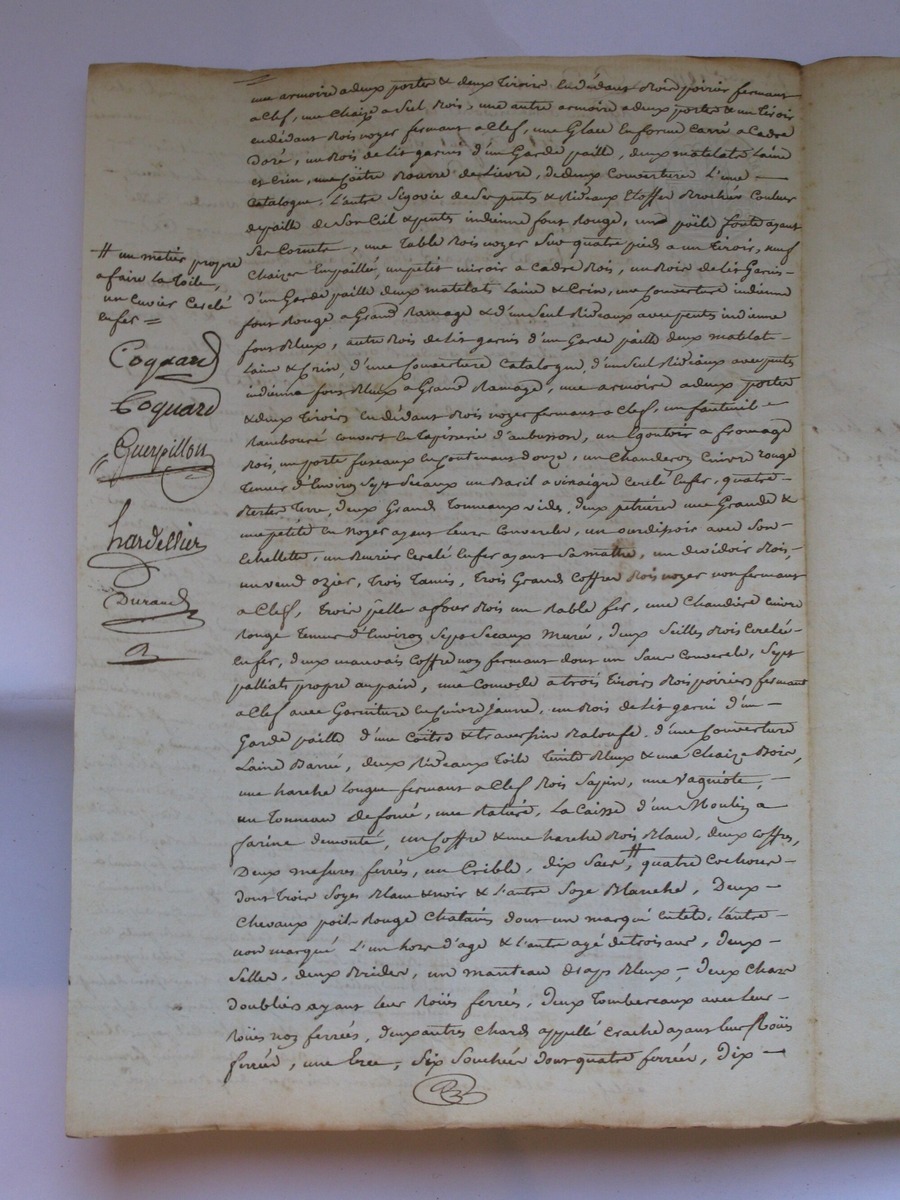 une armoire a deux portes & deux Tiroirs en dédant Bois poirier fermant
a Clef, une Chaize a Sel Bois, une autre armoire a deux portes & un Tiroir
en dédant Bois noyer fermant a Clef, une Glace En forme Carré a Cadre
Doré, un Bois de lit garnis d'un Garde paille, deux matelats Laine
et Crin, une Coitre Bourre de Lievre, de deux Couvertures L'une
Catalogne, L'autre Segovie de Ses pents & Rideaux Etoffes Brochées Couleur
de paille de Son Ciel & pents indienne font Rouge, un poële fonte ayant
Ses Cornets, une Table Bois noyer Sur quatre pieds a un Tiroir, neuf
Chaizes Empaillé, un petit miroir a Cadre Bois, un Bois de lit Garnis
d'un Garde paille deux matelats Laine & Crin, une Couverture indienne
font Rouge a Grand Ramage & d'un Seul Rideaux avec pents indienne
font Bleux, autre Bois de lit garnis d'un Garde paille deux matelat
Laine & Crin, d'une Couverture Catalogne, d'un Seul Rideaux avec pents
indienne font Bleux a Grand Ramage, une armoire a deux portes
& deux Tiroirs En dédant Bois noyer fermant a Clef, un fauteuil
Rambouré Couvert En Tapisserie d'aubusson, un Egoutoir a fromage
Bois, un porte fuseaux En Contenant douze, un Chauderon Cuivre rouge
Tenues d'Environ Sept Seaux un Baril a vinaigre Cerclé En fer, quatre
Bertes Terre, deux Grands Tonneaux vides, deux petrieres une Grande &
une petite En Noyer ayant leurs Couvercles, un ourdissoir avec Son
Echellette, un Burier Cerclé En fer ayant Sa mathe, un devidoir Bois,
un vend ozier, Trois Tamis, Trois Grands Coffres Bois noyer non fermant
a Clef, Trois pelles a four Bois un Rable fer, une Chaudière Cuivre
Rouge Tenues d'Environ Sept Seaux Muré, Deux Seilles Bois Cerclées
En fer, deux mauvais Coffres non fermant dont un Sans Couvercle, Sept
palliats propre au pain, une Comode a trois Tiroirs Bois poiriers fermant
a Clef avec Garniture En Cuivre Jaune, un Bois de lit garni d'un
Garde paille d'une Coitre & traversin Baloufe, d'une Couverture
Laine Barré, deux Rideaux Toile Teinte Bleux & une Chaize Bois,
une harche longue fermant a Clef Bois Sapin, une Vaguiote,
un Tonneau Defoncé, une Ratiere, La Caisse d'un Moulin a
farine demonté, un Coffre & une harche Bois Blanc, deux Coffres,
Deux mesures ferrés, un Crible, dix Sacs ⧺, quatre Cochons
dont Trois Soyes Blanc & noir & l'autre Soye Blanche, Deux
Chevaux poils Rouge Chatains dont un marqué En tête, l'autre
non marqué L'un hors d'age & l'autre agé de trois ans, Deux
Selles, deux Brides, un manteau draps Bleux, Deux Chars
doubliés ayant leur Roües ferrés, Deux Tombereaux avec leurs
Roües non ferrés, Deux autres Chards appellé Crache ayant leurs Roües
ferrées, une Eree, Six Souchées dont quatre ferrées, Dix
⧺ un metier propre
a faire la Toile,
un Cuvier Cerclé
En fer =
Coquard
Coquard
Guerpillon
hardellier
Durand